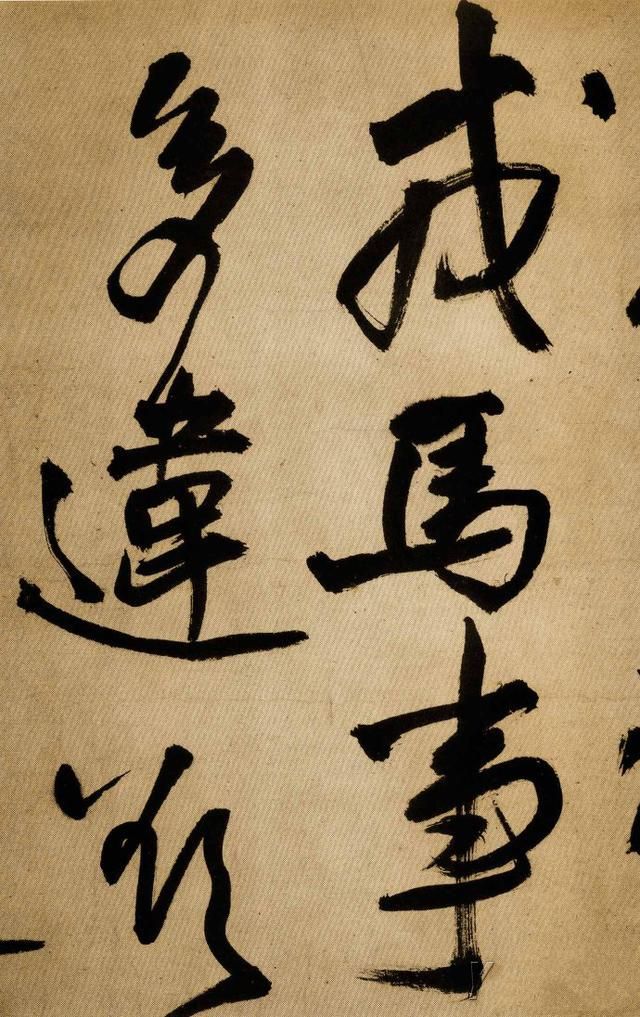 戎馬事
多違